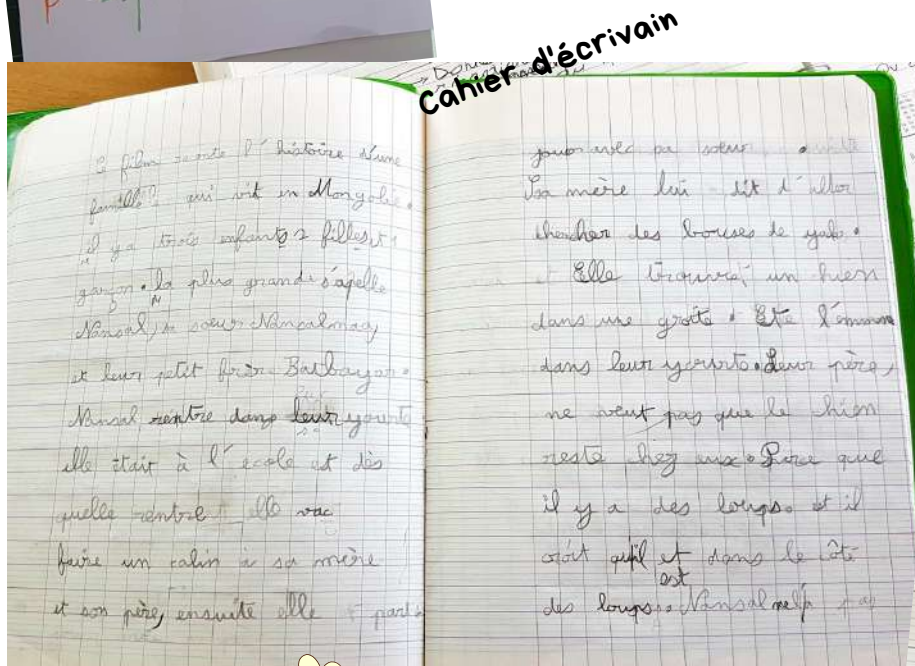 Cahier d'écrivain
film raconte l'histoire d'une
famille qui vit en Mongolie.
il y a trois enfants 2 filles et 1
garçon. la plus grande s'apelle
Nansal, sa soeur Nansalmaa,
et leur petit frèr Batbayar.
Nansal rentre dans leur yourte
elle était à l'école et dès
quelle rentre elle va
faire un calin à sa mère
et son père, ensuite elle parti
jouer avec sa soeur.
Sa mère lui dit d'aller
chercher des bouses de yak.
Elle trouve un hien
dans une grote. Et l'emmne
dans leur yourte. Leur père,
ne veut pas que le hien
reste hez eux. Parce que
il y a des loups. et il
croit qu'il et dans le côté
est
des loups. Nansal pas